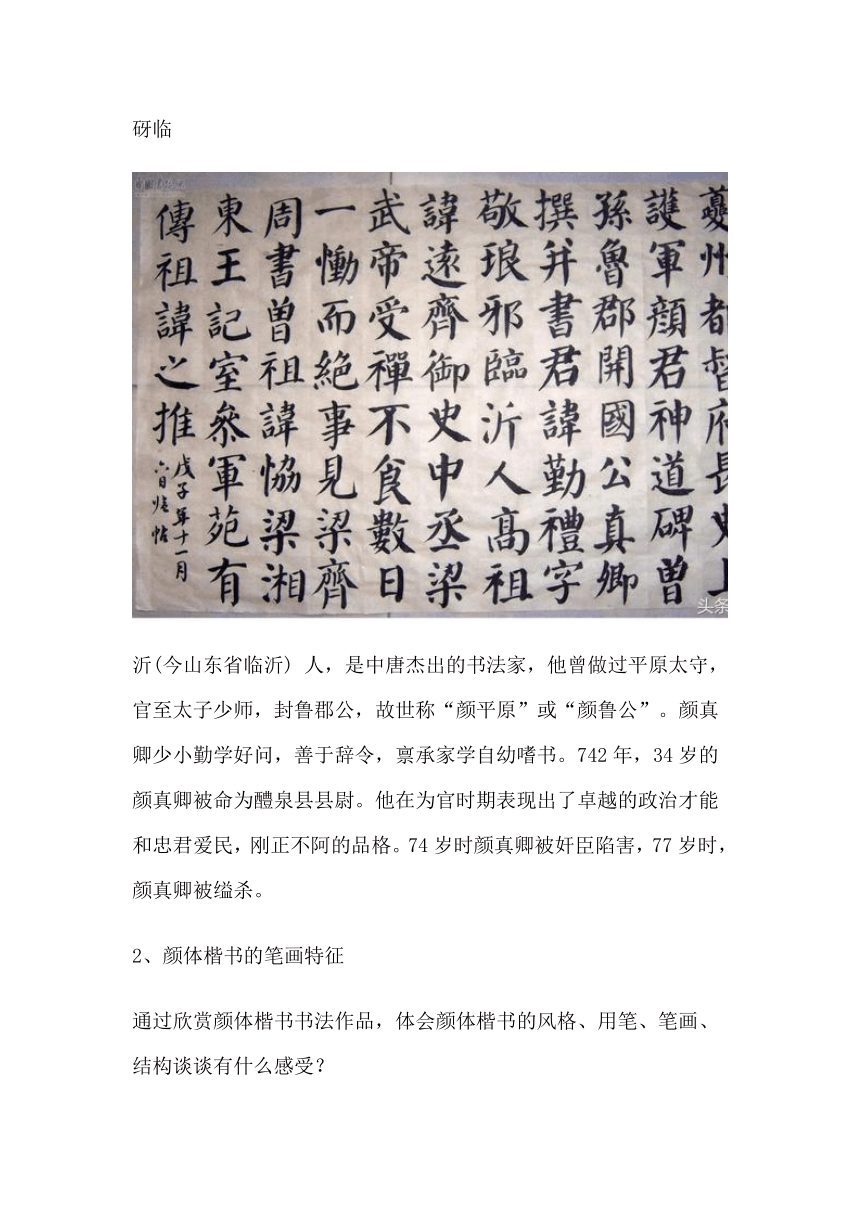 砑临
夔州都督府長史上
護軍顔君神道碑曾
孫魯郡開國公真卿
撰并書君諱勤禮字
敬琅邪臨沂人高祖
諱遠齊御史中丞梁
武帝受禪不食數日
一慟而絶事見梁齊
周書曾祖諱恊梁湘
東王記室叅軍苑有
傳祖諱之推
戊子年十一月
六日
头条
沂(今山东省临沂) 人，是中唐杰出的书法家，他曾做过平原太守，
官至太子少师，封鲁郡公，故世称“颜平原”或“颜鲁公”。颜真
卿少小勤学好问，善于辞令，禀承家学自幼嗜书。742 年，34 岁的
颜真卿被命为醴泉县县尉。他在为官时期表现出了卓越的政治才能
和忠君爱民，刚正不阿的品格。74 岁时颜真卿被奸臣陷害，77 岁时，
颜真卿被缢杀。
2、颜体楷书的笔画特征
通过欣赏颜体楷书书法作品，体会颜体楷书的风格、用笔、笔画、
结构谈谈有什么感受？